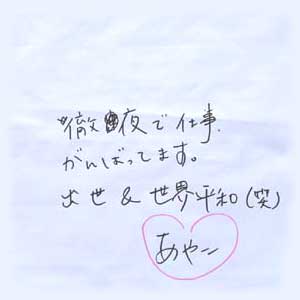 徹夜で仕事、
がんばってます。
出世&世界平和(笑)
あやー